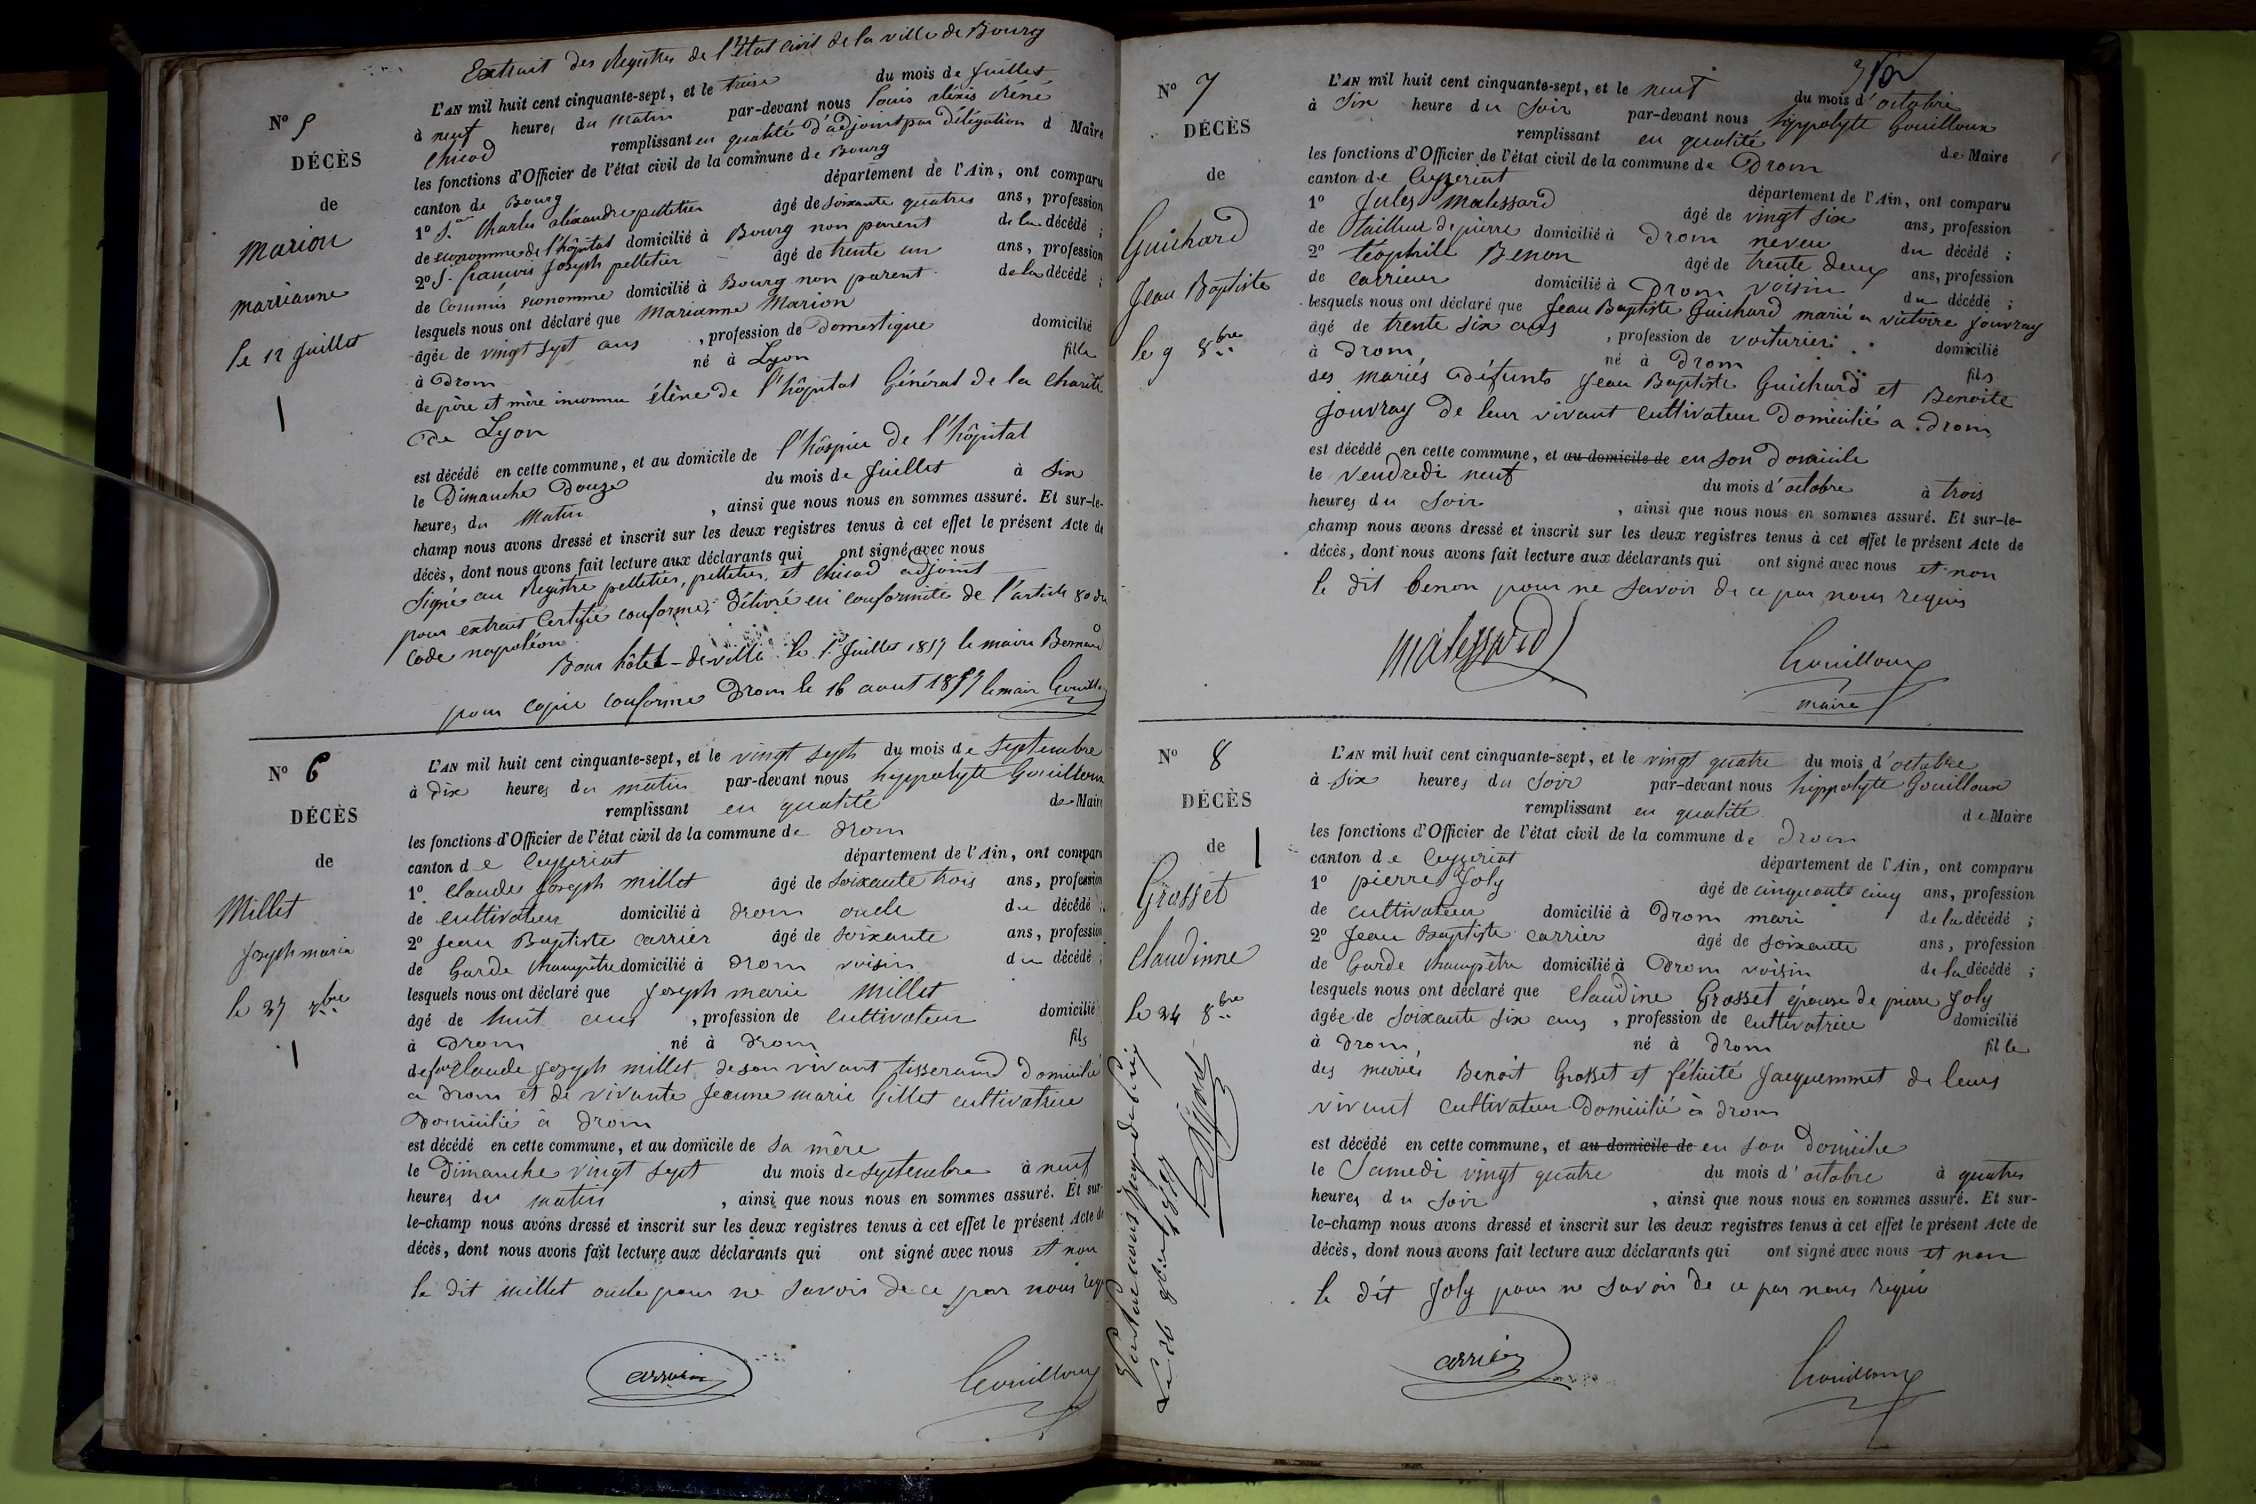 Extrait des Registres de l'Etat civil de la ville de Bourg
N° 5
DÉCÈS
de
Marion
marianne
le 12 juillet
L'AN mil huit cent cinquante-sept, et le treize du mois de juillet
à neuf heures du matin par-devant nous Louis aléxis réné
Chicod remplissant en qualité d'adjoint par délégation d Maire
les fonctions d'Officier de l'état civil de la commune de Bourg
canton de Bourg département de l'Ain, ont comparu
1° Sr. Charles aléxandre pelletier âgé de soixante quatres ans, profession
de économe de l'hôpital domicilié à Bourg non parent de la décédé ;
2° S. francois Joseph pelletier âgé de trente un ans, profession
de Commis économe domicilié à Bourg non parent de la décédé ;
lesquels nous ont déclaré que Marianne Marion
âgée de vingt sept ans , profession de Domestique domicilié
à Drom né à Lyon fille
de père et mère inconnu élève de l'hôpital Général de la Charité
de Lyon
est décédé en cette commune, et au domicile de l'hospice de l'hôpital
le Dimanche Douze du mois de Juillet à Six
heures du Matin , ainsi que nous nous en sommes assuré. Et sur-le-
champ nous avons dressé et inscrit sur les deux registres tenus à cet effet le présent Acte de
décès, dont nous avons fait lecture aux déclarants qui ont signé avec nous
Signé au Registre pelletier, pelletier, et Chicod adjoint
pour extrait Certifié conforme, Délivré en conformité de l'article 80 du
Code napoléon
Bour hôtel-de-ville le Juillet 1857 le maire Bernard
pour copie conforme Drom le 16 aout 1857 le maire Gouilloux
N° 6
DÉCÈS
de
Millet
Joseph marie
le 27 7bre
L'AN mil huit cent cinquante-sept, et le vingt sept du mois de Septembre
à dix heures du matin par-devant nous hyppolyte Gouilloux
remplissant en qualité de Maire
les fonctions d'Officier de l'état civil de la commune de Drom
canton de Ceyzeriat département de l'Ain, ont comparu
1° Claude Joseph millet âgé de soixante trois ans, profession
de cultivateur domicilié à Drom oncle du décédé ;
2° Jean Baptiste carrier âgé de soixante ans, profession
de Garde champêtre domicilié à Drom voisin du décédé ;
lesquels nous ont déclaré que Joseph marie Millet
âgé de huit ans , profession de cultivateur domicilié
à Drom né à Drom fils
de feu Claude Joseph millet de son vivant tisserand Domicilié
a Drom et de vivante Jeanne marie Gillet cultivatrice
Domicilié à Drom
est décédé en cette commune, et au domicile de Sa mère
le Dimanche vingt sept du mois de septembre à neuf
heures du matin , ainsi que nous nous en sommes assuré. Et sur-
le-champ nous avons dressé et inscrit sur les deux registres tenus à cet effet le présent Acte de
décès, dont nous avons fait lecture aux déclarants qui ont signé avec nous et non
le dit millet oncle pour ne savoir de ce par nous requis
carrier
Gouilloux
N° 7
DÉCÈS
de
Guichard
Jean Baptiste
le 9 8bre
L'AN mil huit cent cinquante-sept, et le neuf du mois d'octobre
à Six heure du Soir par-devant nous hippolyte Gouilloux
remplissant en qualité de Maire
les fonctions d'Officier de l'état civil de la commune de Drom
canton de Ceyzeriat département de l'Ain, ont comparu
1° Jules Malessard âgé de vingt six ans, profession
de tailleur de pierre domicilié à Drom neveu du décédé ;
2° téophile Benon âgé de trente deux ans, profession
de carrieur domicilié à Drom voisin du décédé ;
lesquels nous ont déclaré que Jean Baptiste Guichard marié a victoire jouvray
âgé de trente six ans , profession de voiturier domicilié
à Drom né à Drom fils
des mariés Défunts Jean Baptiste Guichard et Benoite
jouvray de leur vivant cultivateur Domicilié a Drom
est décédé en cette commune, et au domicile de en son Domicile
le vendredi neuf du mois d'octobre à trois
heures du Soir , ainsi que nous nous en sommes assuré. Et sur-le-
champ nous avons dressé et inscrit sur les deux registres tenus à cet effet le présent Acte de
décès, dont nous avons fait lecture aux déclarants qui ont signé avec nous et non
le dit benon pour ne savoir de ce par nous requis
Malessard
Gouilloux
maire
N° 8
DÉCÈS
de
Grosset
Claudinne
le 24 8bre
L'AN mil huit cent cinquante-sept, et le vingt quatre du mois d'octobre
à six heures du Soir par-devant nous hippolyte Gouilloux
remplissant en qualité de Maire
les fonctions d'Officier de l'état civil de la commune de Drom
canton de Ceyzeriat département de l'Ain, ont comparu
1° pierre Joly âgé de cinquante cinq ans, profession
de cultivateur domicilié à Drom mari de la décédé ;
2° Jean Baptiste carrier âgé de soixante ans, profession
de Garde champêtre domicilié à Drom voisin de la décédé ;
lesquels nous ont déclaré que Claudine Grosset épouse de pierre Joly
âgée de soixante six ans , profession de cultivatrice domicilié
à Drom né à Drom fille
des mariés Benoit Grosset et félicité Jacquemmet de leurs
vivant cultivateur Domicilié à Drom
est décédé en cette commune, et au domicile de en son Domicile
le Samedi vingt quatre du mois d'octobre à quatres
heures du Soir , ainsi que nous nous en sommes assuré. Et sur-
le-champ nous avons dressé et inscrit sur les deux registres tenus à cet effet le présent Acte de
décès, dont nous avons fait lecture aux déclarants qui ont signé avec nous et non
le dit Joly pour ne savoir de ce par nous requis
carrier
Gouilloux